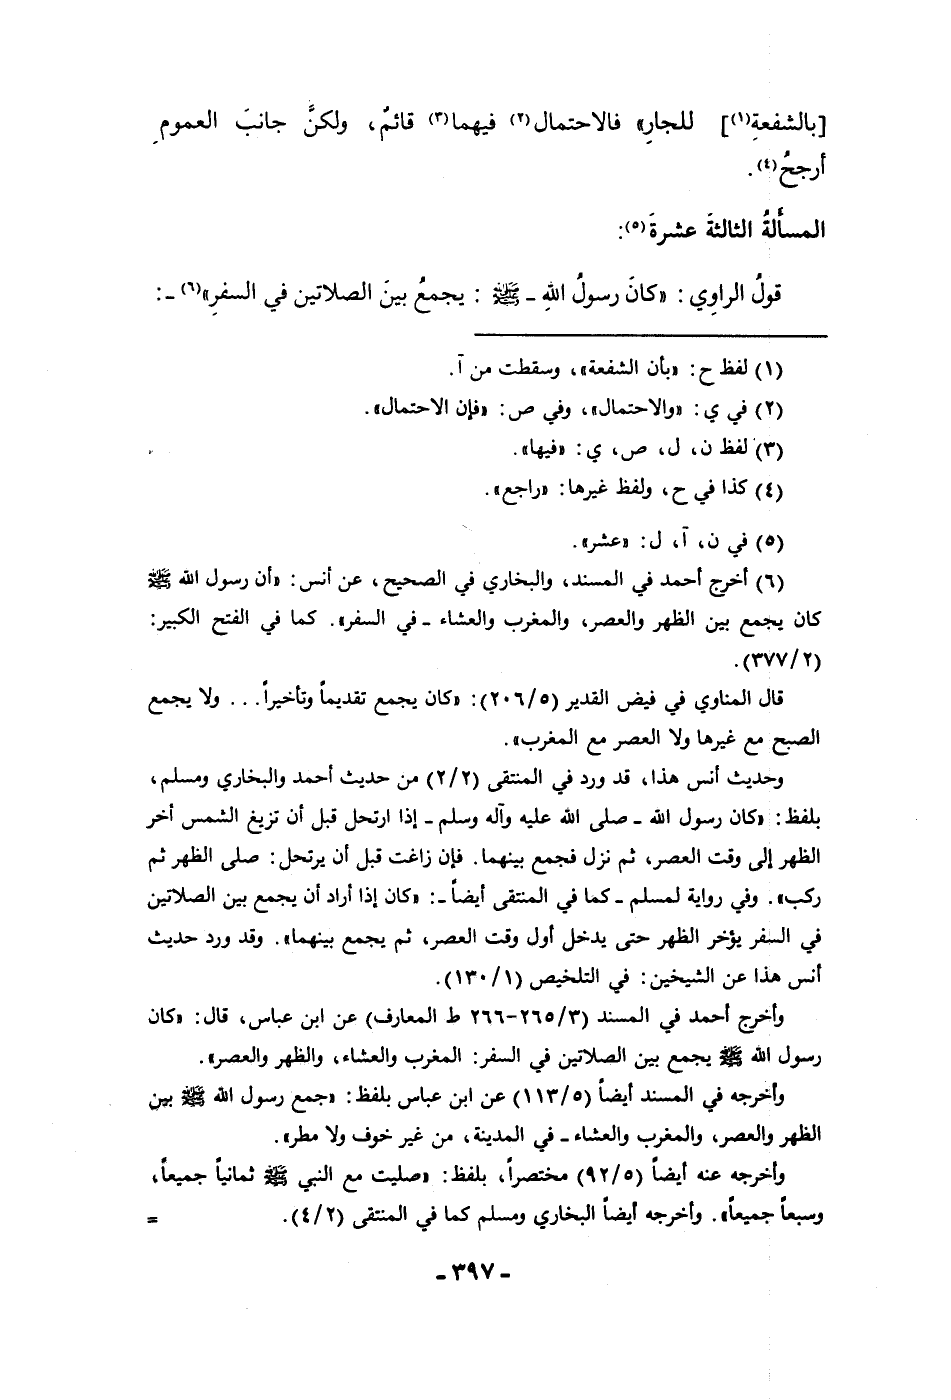 [بالشفعةِ(١)] للجارِ» فالاحتمال(٢) فيهما(٣) قائمٌ، ولكنَّ جانبَ العمومِ
أرجحُ(٤).
المسألةُ الثالثةَ عشرةَ(٥):
قولُ الراوِي: «كانَ رسولُ اللهِ ـ ﷺ : يجمعُ بينَ الصلاتين في السفرِ»(٦) ـ:
(١) لفظ ح: «بأن الشفعة»، وسقطت من آ.
(٢) في ي: «والاحتمال»، وفي ص: «فإن الاحتمال».
(٣) لفظ ن، ل، ص، ي: «فيها».
(٤) كذا في ح، ولفظ غيرها: «راجع».
(٥) في ن، آ، ل: «عشر».
(٦) أخرج أحمد في المسند، والبخاري في الصحيح، عن أنس: «أن رسول الله ﷺ
كان يجمع بين الظهر والعصر، والمغرب والعشاء ـ في السفر». كما في الفتح الكبير:
(٣٧٧/٢).
قال المناوي في فيض القدير (٢٠٦/٥): «كان يجمع تقديماً وتأخيراً... ولا يجمع
الصبح مع غيرها ولا العصر مع المغرب».
وحديث أنس هذا، قد ورد في المنتقى (٢/٢) من حديث أحمد والبخاري ومسلم،
بلفظ: «كان رسول الله ـ صلى الله عليه وآله وسلم ـ إذا ارتحل قبل أن تزيغ الشمس أخر
الظهر إلى وقت العصر، ثم نزل فجمع بينهما. فإن زاغت قبل أن يرتحل: صلى الظهر ثم
ركب». وفي رواية لمسلم ـ كما في المنتقى أيضاً ـ: «كان إذا أراد أن يجمع بين الصلاتين
في السفر يؤخر الظهر حتى يدخل أول وقت العصر، ثم يجمع بينهما». وقد ورد حديث
أنس هذا عن الشيخين: في التلخيص (١٣٠/١).
وأخرج أحمد في المسند (٢٦٥/٣-٢٦٦ ط المعارف) عن ابن عباس، قال: «كان
رسول الله ﷺ يجمع بين الصلاتين في السفر: المغرب والعشاء، والظهر والعصر».
وأخرجه في المسند أيضاً (١١٣/٥) عن ابن عباس بلفظ: «جمع رسول الله ﷺ بين
الظهر والعصر، والمغرب والعشاء ـ في المدينة، من غير خوف ولا مطر».
وأخرجه عنه أيضاً (٩٢/٥) مختصراً، بلفظ: «صليت مع النبي ﷺ ثمانياً جميعاً،
وسبعاً جميعاً». وأخرجه أيضاً البخاري ومسلم كما في المنتقى (٤/٢). =
ـ ٣٩٧ ـ